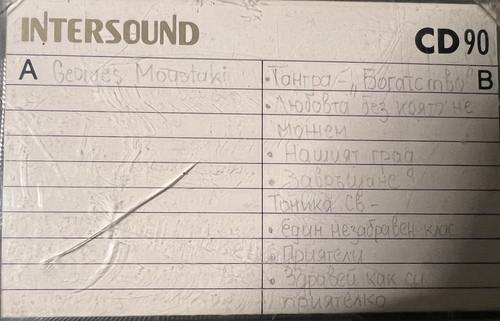 INTERSOUND
CD 90
A Georges Moustaki
• Тангра - „Богатство" B
• Любовта без която не
можем
• Нашият град
• Завръщане"
Тоника СВ -
• Един незабравен клас
• Приятели
• Здравей как си
приятелко